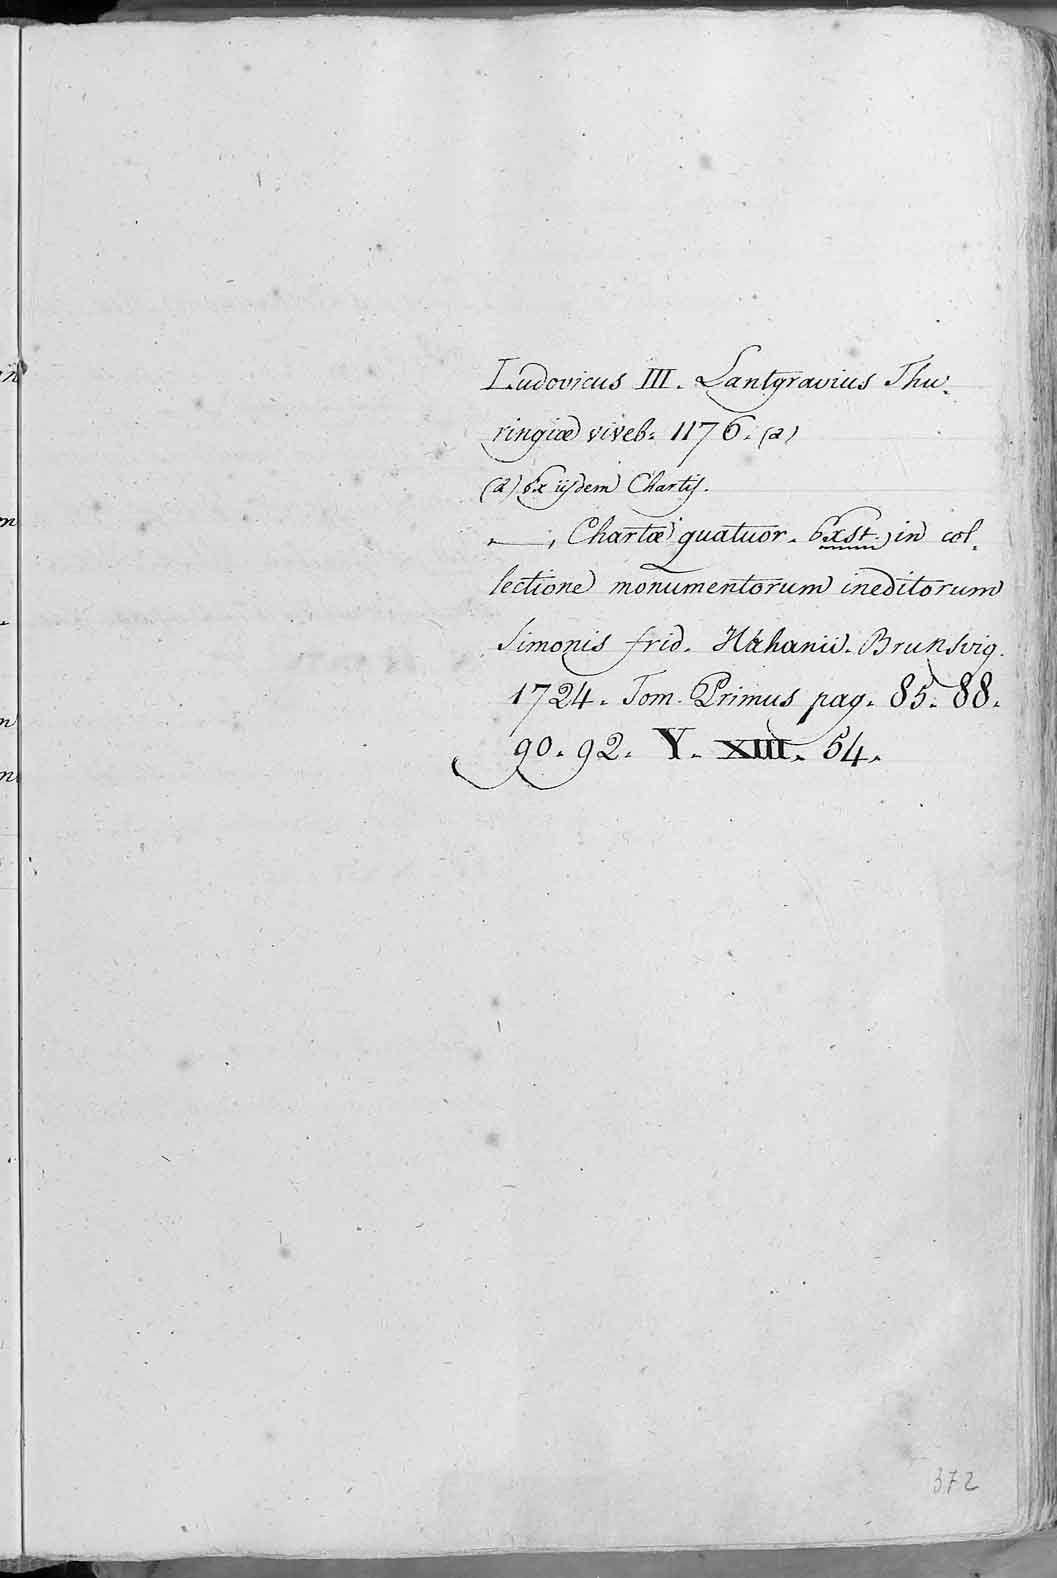 Ludovicus III. Lantgravius Thu-
ringiæ viveb. 1176. (a)
(a) Ex iisdem Chartis.
—, Chartæ quatuor. Exst. in col-
lectione monumentorum ineditorum
Simonis frid. Hahanii. Brunsvig.
1724. Tom. Primus pag. 85. 88.
90. 92. Y. XIII. 54.
372